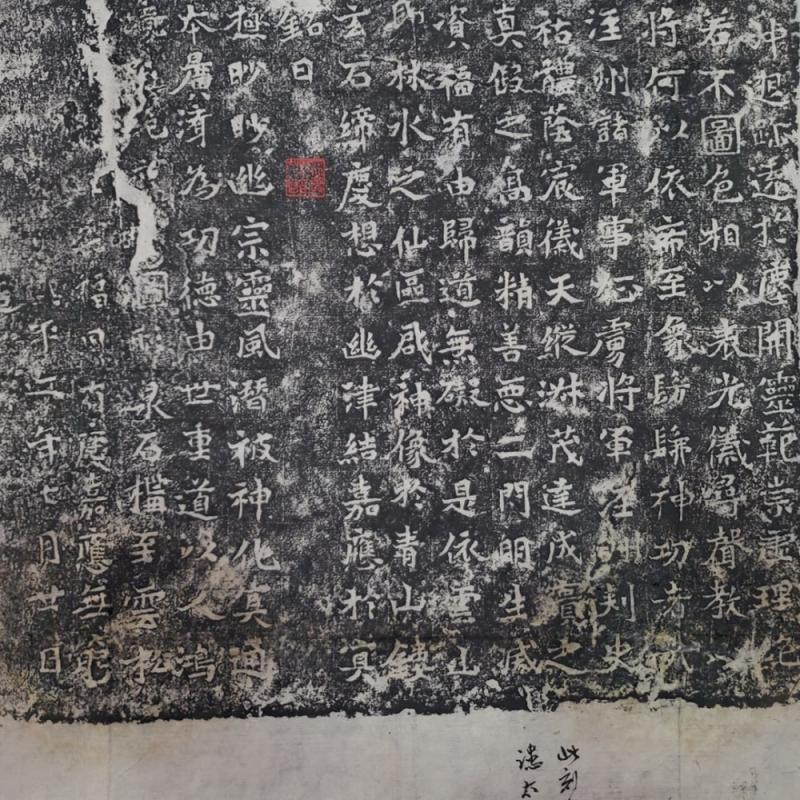 沖迥跡遠於塵開靈範崇理絕
若不圖色相以表光儀尋聲教以
將何以依至象歸神功者
涇州諸軍事征虜將軍涇州刺史
祜體蔭宸儀天縱淑茂達成之
真假之高韻精善惡二門明生滅
資福有由歸道無礙於是依雲山
即林水之仙區啟神像於青山鏤
玄石締慶想於幽津結嘉應於冥
銘曰
極眇眇幽宗靈風潛被神化真通
本廣濟為功德由世重道以人鴻
圖形泉石構至雲松
有慶嘉應無窮
平二年七月廿日
此刻